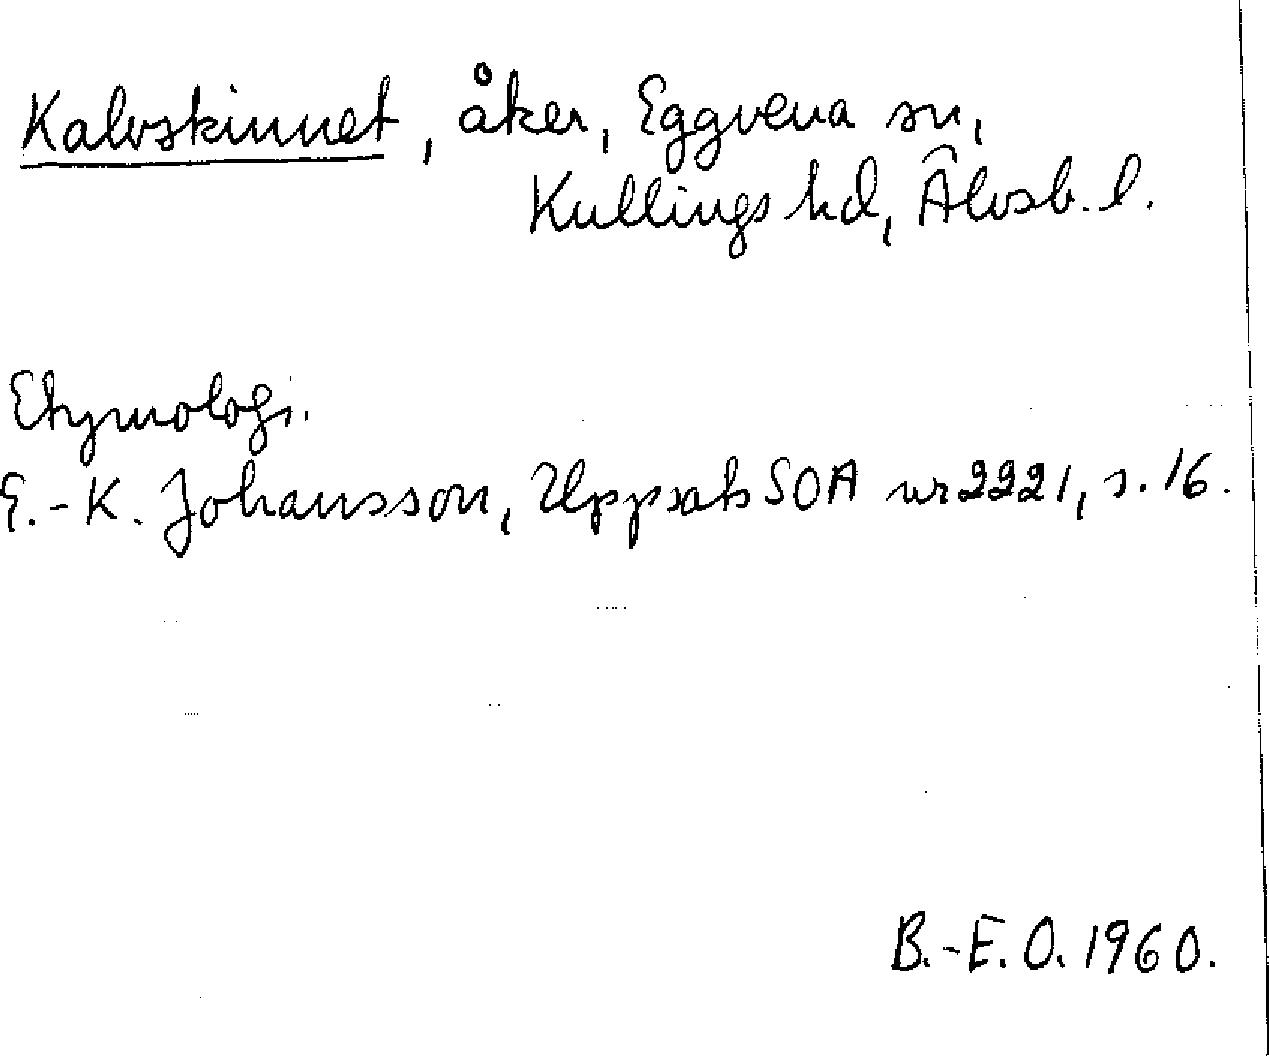 Kalvskinnet, åker, Eggvena sn,
Kullings hd, Älvsb. l.
Etymologi.
E.-K. Johansson, Uppsats SOA nr 2221, s. 16.
B.-E. O. 1960.